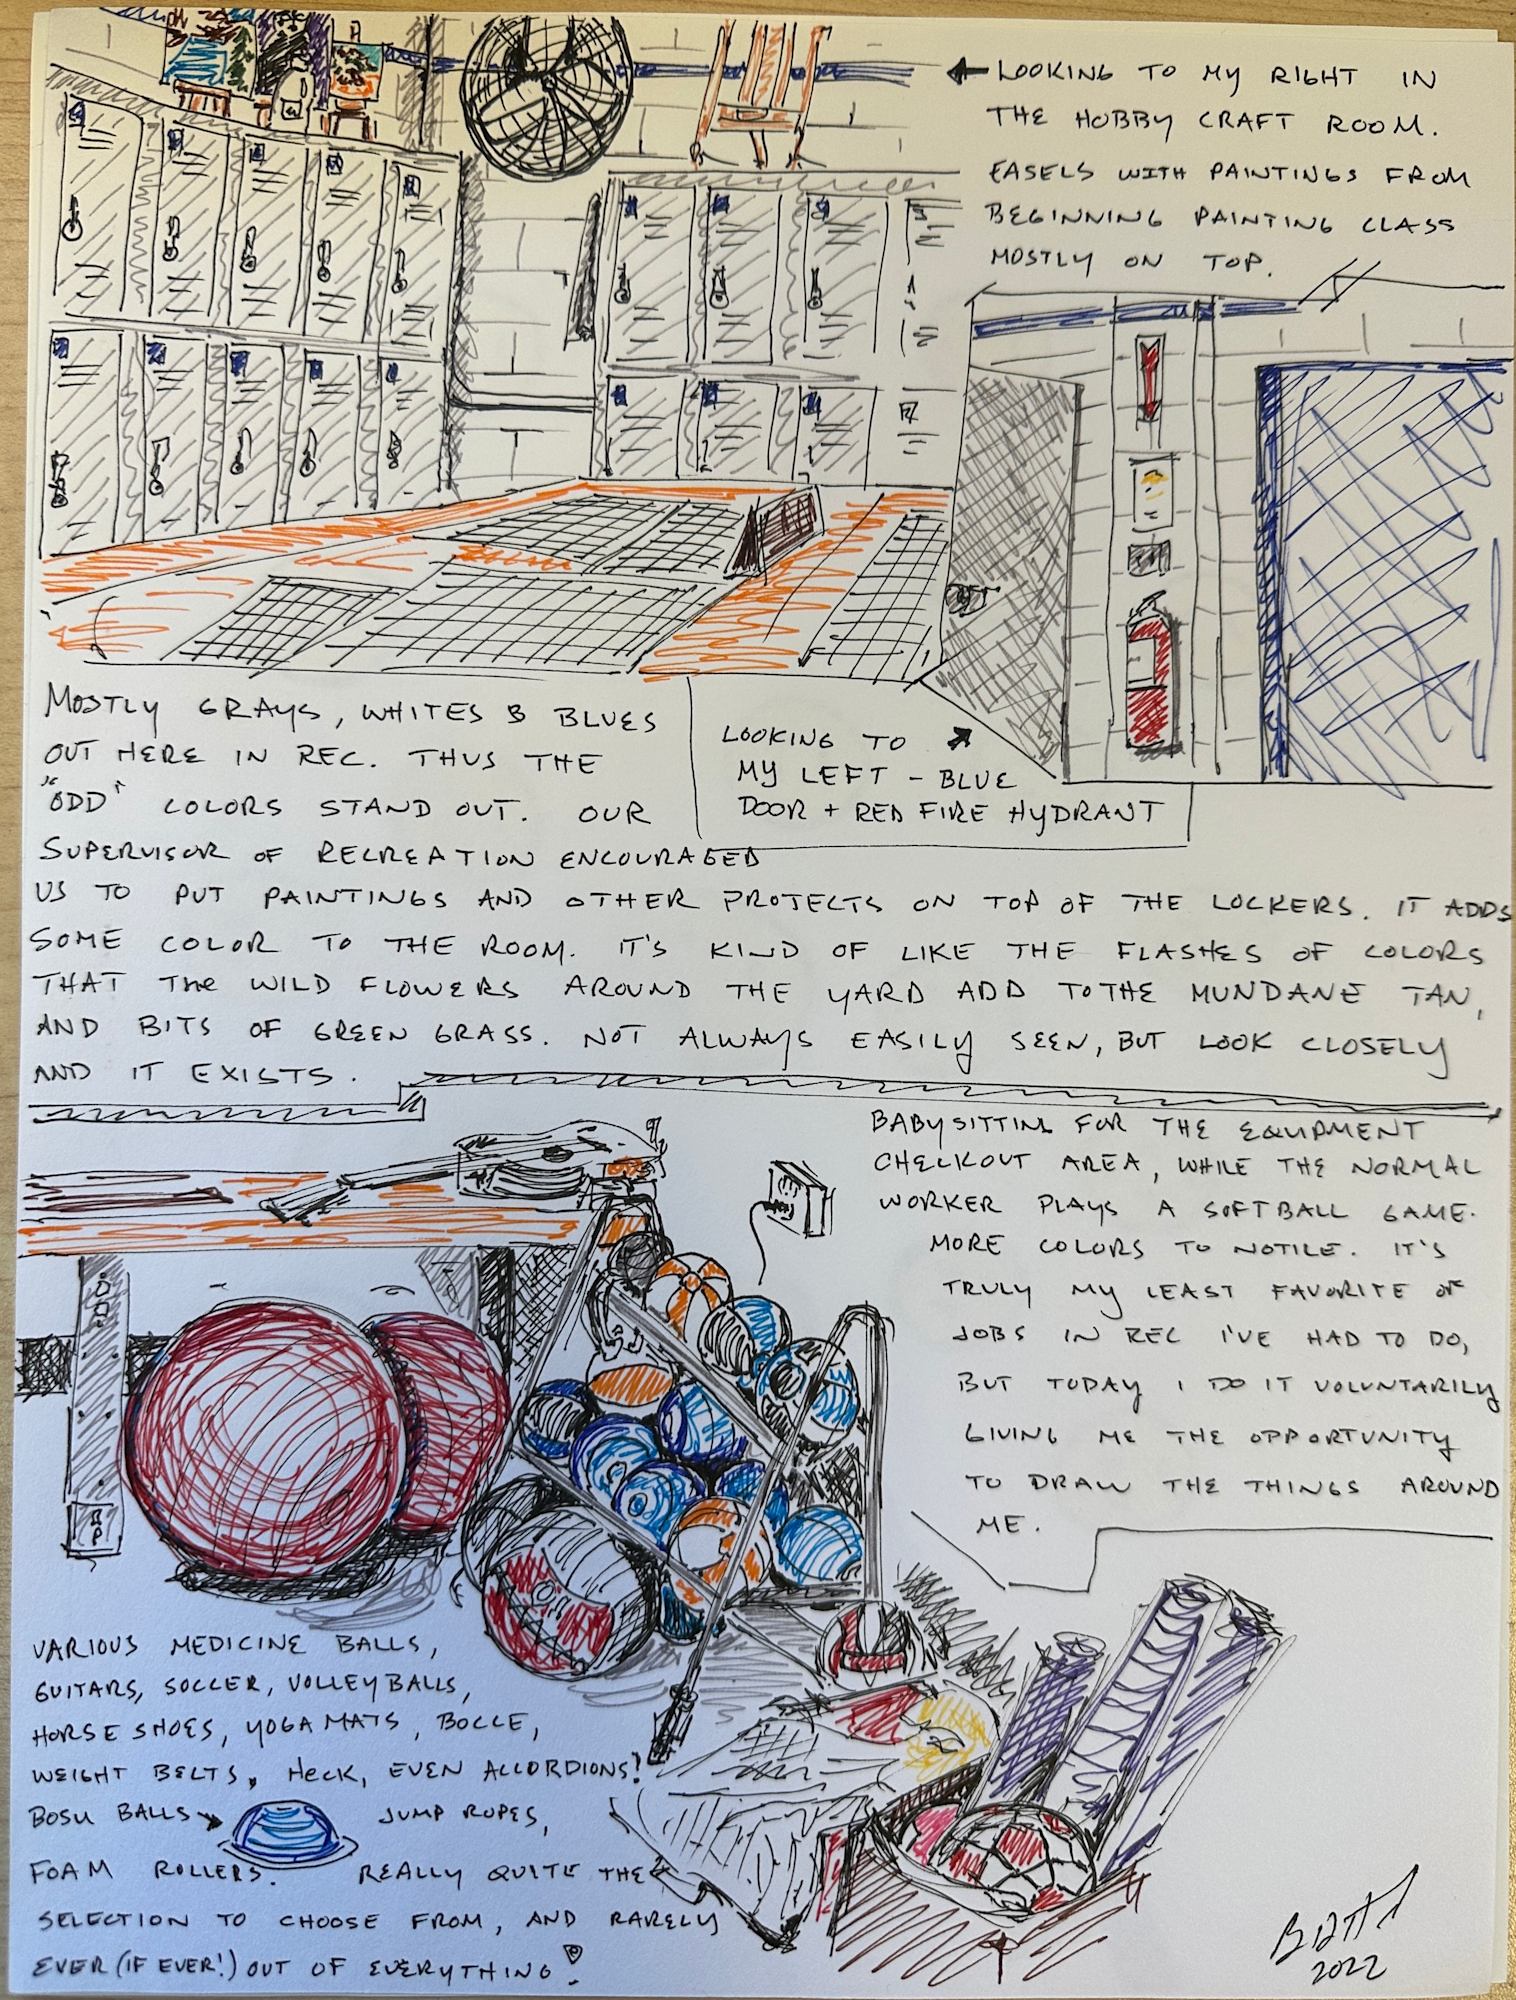 ← LOOKING TO MY RIGHT IN
THE HOBBY CRAFT ROOM.
EASELS WITH PAINTINGS FROM
BEGINNING PAINTING CLASS
MOSTLY ON TOP.
MOSTLY GRAYS, WHITES & BLUES
OUT HERE IN REC. THUS THE
"ODD" COLORS STAND OUT. OUR
SUPERVISOR OF RECREATION ENCOURAGED
US TO PUT PAINTINGS AND OTHER PROJECTS ON TOP OF THE LOCKERS. IT ADDS
SOME COLOR TO THE ROOM. IT'S KIND OF LIKE THE FLASHES OF COLORS
THAT THE WILD FLOWERS AROUND THE YARD ADD TO THE MUNDANE TAN,
AND BITS OF GREEN GRASS. NOT ALWAYS EASILY SEEN, BUT LOOK CLOSELY
AND IT EXISTS.
LOOKING TO ↗
MY LEFT - BLUE
DOOR + RED FIRE HYDRANT
BABYSITTING FOR THE EQUIPMENT
CHECKOUT AREA, WHILE THE NORMAL
WORKER PLAYS A SOFTBALL GAME.
MORE COLORS TO NOTICE. IT'S
TRULY MY LEAST FAVORITE OF
JOBS IN REC I'VE HAD TO DO,
BUT TODAY I DO IT VOLUNTARILY
GIVING ME THE OPPORTUNITY
TO DRAW THE THINGS AROUND
ME.
VARIOUS MEDICINE BALLS,
GUITARS, SOCCER, VOLLEYBALLS,
HORSE SHOES, YOGA MATS, BOCCE,
WEIGHT BELTS, HECK, EVEN ACCORDIONS!
BOSU BALLS → JUMP ROPES,
FOAM ROLLERS. REALLY QUITE THE
SELECTION TO CHOOSE FROM, AND RARELY
EVER (IF EVER!) OUT OF EVERYTHING!
2022